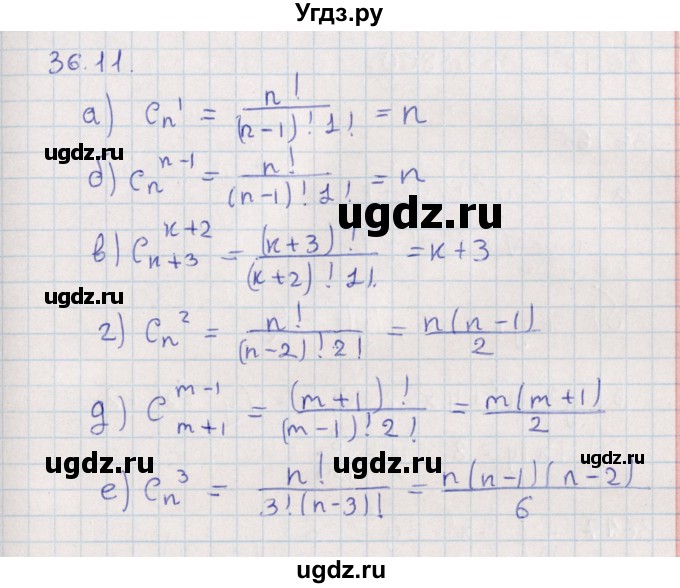 Угдз.ру
36.11.
а) C_n^1 = n! / (n-1)! 1! = n
ugdz.ru
б) C_n^{n-1} = n! / (n-1)! 1! = n
ugdz.ru
ugdz.ru
в) C_{к+3}^{к+2} = (к+3)! / (к+2)! 1! = к+3
ugdz.ru
г) C_n^2 = n! / (n-2)! 2! = n(n-1) / 2
ugdz.ru
ugdz.ru
д) C_{m+1}^{m-1} = (m+1)! / (m-1)! 2! = m(m+1) / 2
ugdz.ru
ugdz.ru
е) C_n^3 = n! / 3! (n-3)! = n(n-1)(n-2) / 6
ugdz.ru
ugdz.ru